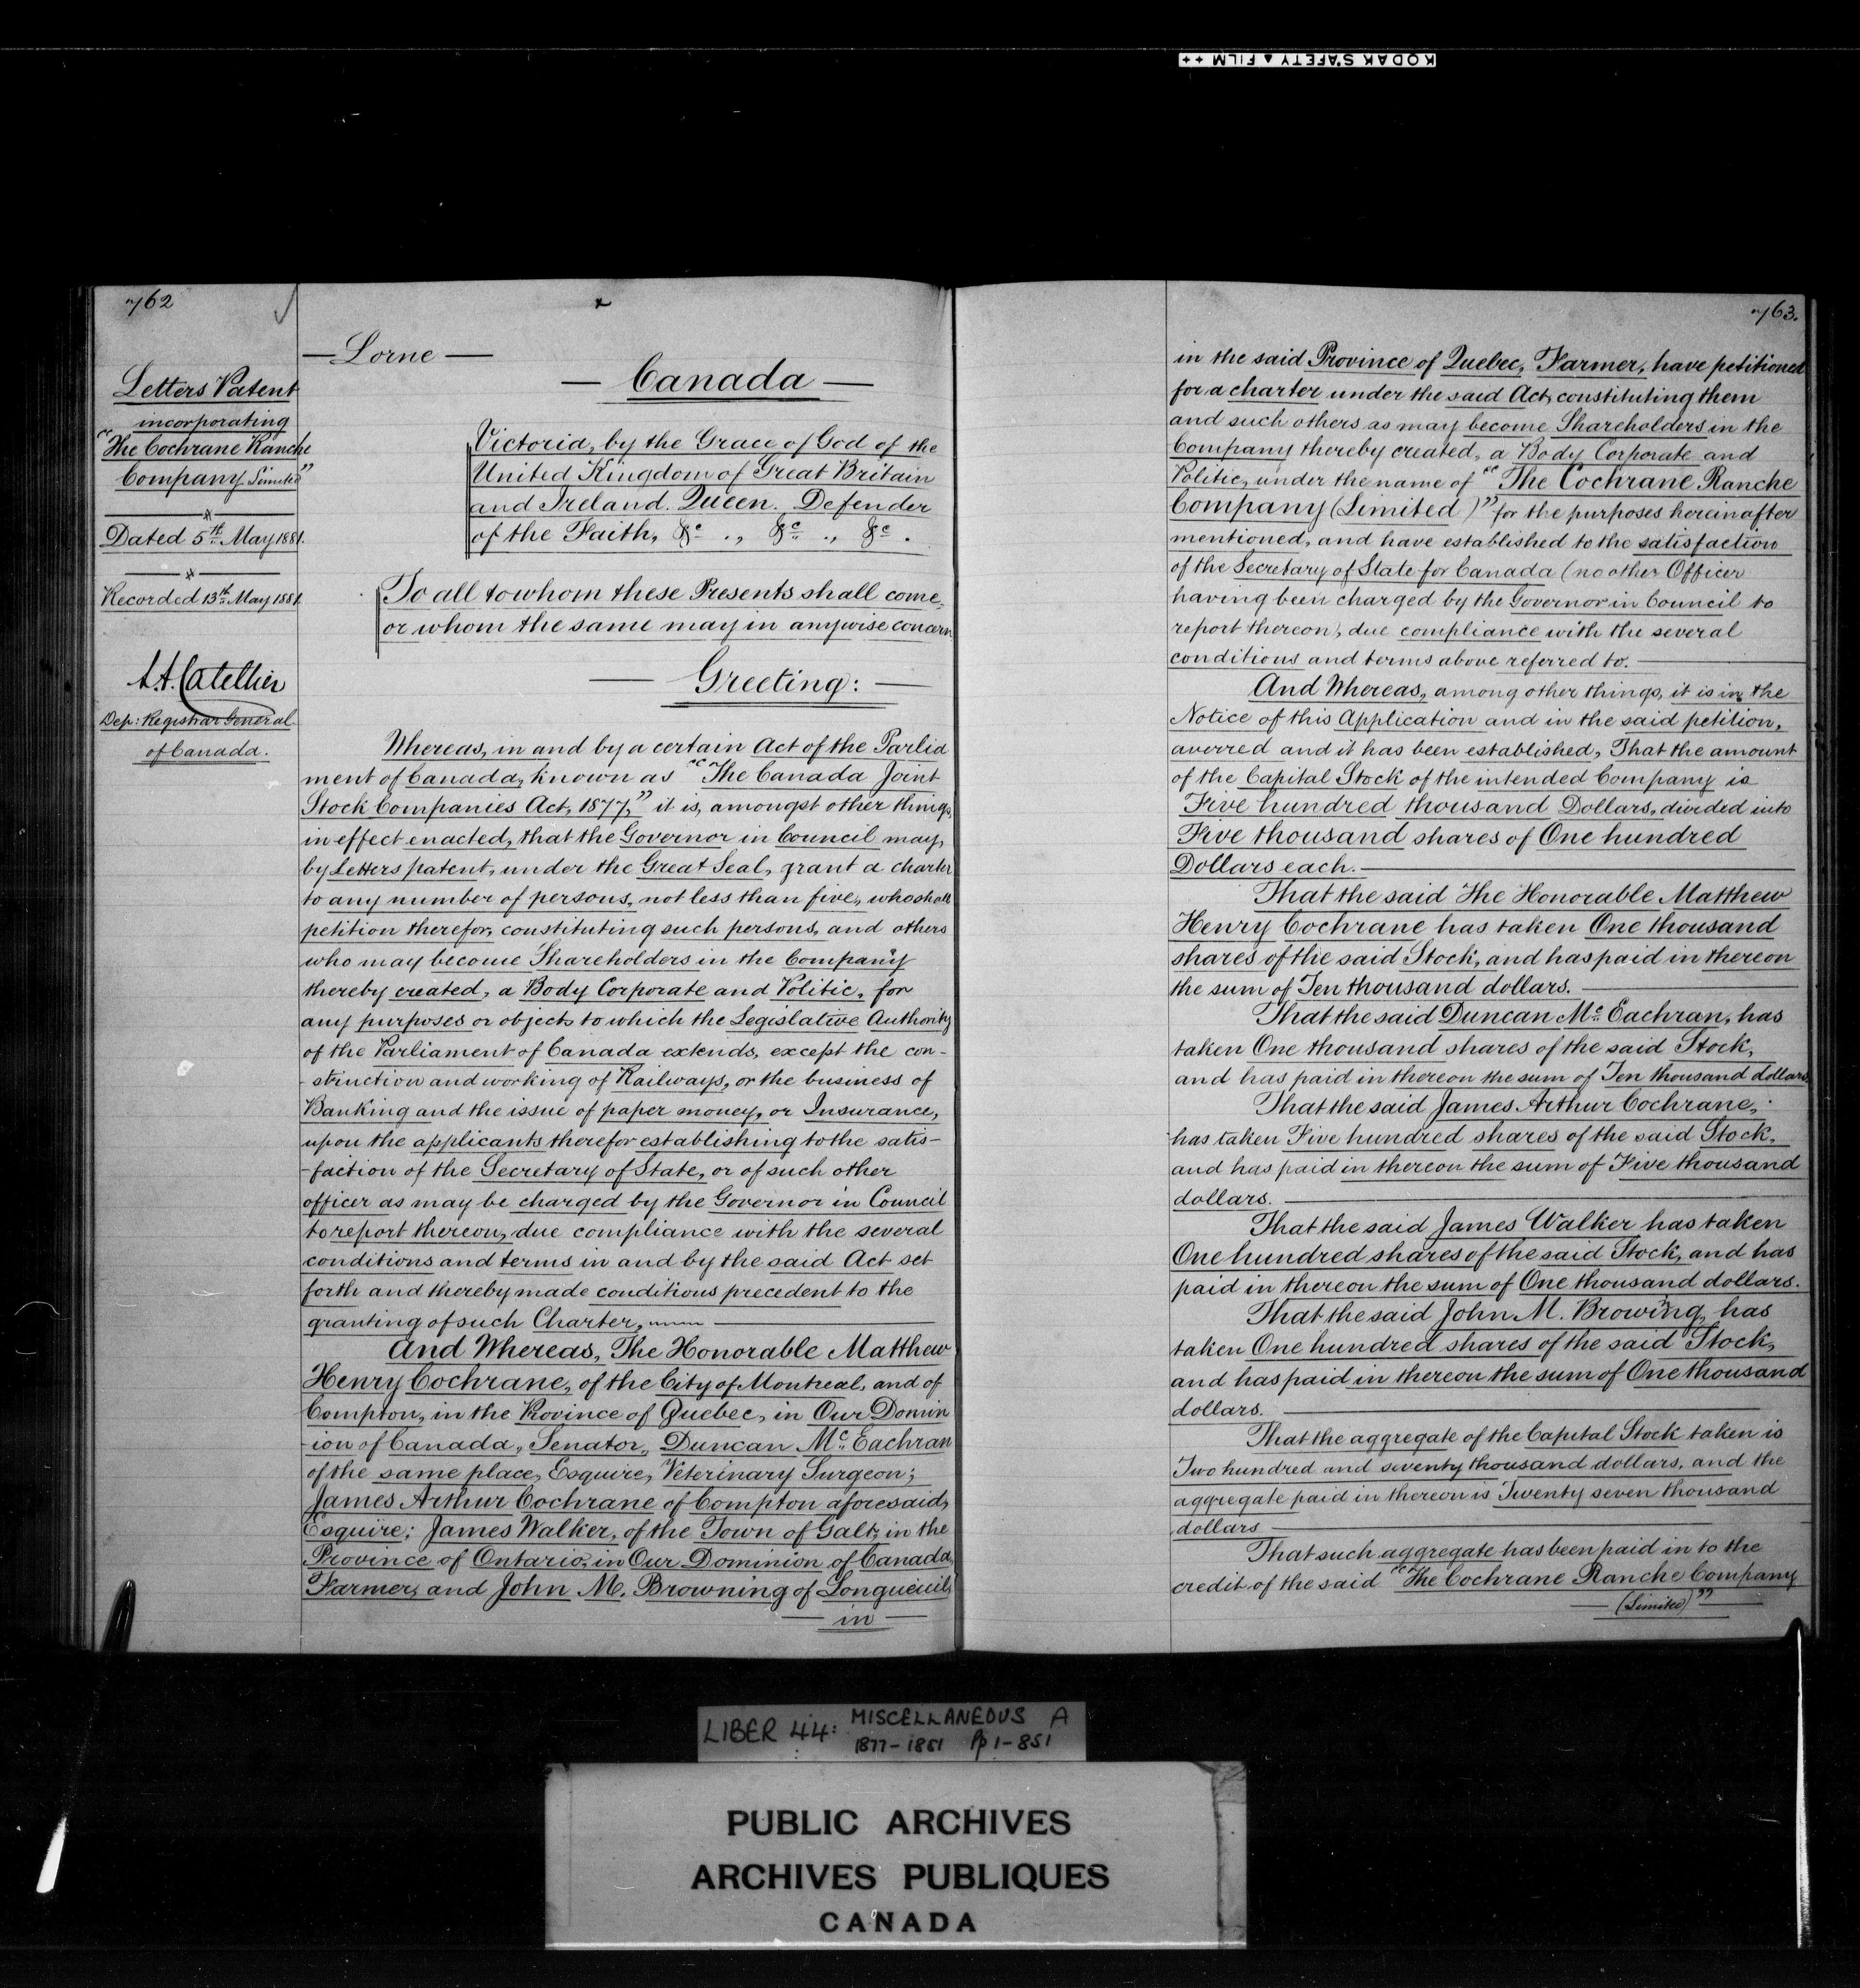 KODAK SAFETY ▲ FILM ++
762
Letters Patent
incorporating
"The Cochrane Ranche
Company Limited"
Dated 5th May 1881.
Recorded 13th May 1881
L.A. Catellier
Dep: Registrar General
of Canada.
— Lorne —
— Canada —
Victoria, by the Grace of God of the
United Kingdom of Great Britain
and Ireland. Queen. Defender
of the Faith, &c ., &c ., &c .
To all to whom these Presents shall come,
or whom the same may in anywise concern
— Greeting: —
Whereas, in and by a certain Act of the Parlia
ment of Canada, known as "The Canada Joint
Stock Companies Act, 1877," it is, amongst other things,
in effect enacted, that the Governor in Council may,
by Letters patent, under the Great Seal, grant a charter
to any number of persons, not less than five, who shall
petition therefor, constituting such persons, and others
who may become Shareholders in the Company
thereby created, a Body Corporate and Politic, for
any purposes or objects to which the Legislative Authority
of the Parliament of Canada extends, except the con-
-struction and working of Railways, or the business of
Banking and the issue of paper money, or Insurance,
upon the applicants therefor establishing to the satis-
-faction of the Secretary of State, or of such other
officer as may be charged by the Governor in Council
to report thereon, due compliance with the several
conditions and terms in and by the said Act set
forth and thereby made conditions precedent to the
granting of such Charter, —
And Whereas, The Honorable Matthew
Henry Cochrane, of the City of Montreal, and of
Compton, in the Province of Quebec, in Our Domin
-ion of Canada, Senator, Duncan Mc Eachran
of the same place, Esquire, Veterinary Surgeon;
James Arthur Cochrane of Compton aforesaid,
Esquire; James Walker, of the Town of Galt, in the
Province of Ontario, in Our Dominion of Canada,
Farmer, and John M. Browning of Longueuil,
— in —
763.
in the said Province of Quebec, Farmer, have petitioned
for a charter under the said Act, constituting them
and such others as may become Shareholders in the
Company thereby created, a Body Corporate and
Politic, under the name of "The Cochrane Ranche
Company (Limited)" for the purposes hereinafter
mentioned, and have established to the satisfaction
of the Secretary of State for Canada (no other Officer
having been charged by the Governor in Council to
report thereon), due compliance with the several
conditions and terms above referred to. —
And Whereas, among other things, it is in the
Notice of this Application and in the said petition,
averred and it has been established, That the amount
of the Capital Stock of the intended Company is
Five hundred thousand Dollars, divided into
Five thousand shares of One hundred
Dollars each. —
That the said The Honorable Matthew
Henry Cochrane has taken One thousand
shares of the said Stock, and has paid in thereon
the sum of Ten thousand dollars. —
That the said Duncan Mc Eachran, has
taken One thousand shares of the said Stock,
and has paid in thereon the sum of Ten thousand dollars
That the said James Arthur Cochrane,
has taken Five hundred shares of the said Stock,
and has paid in thereon the sum of Five thousand
dollars. —
That the said James Walker has taken
One hundred shares of the said Stock, and has
paid in thereon the sum of One thousand dollars.
That the said John M. Browing, has
taken One hundred shares of the said Stock,
and has paid in thereon the sum of One thousand
dollars. —
That the aggregate of the Capital Stock taken is
Two hundred and seventy thousand dollars, and the
aggregate paid in thereon is Twenty seven thousand
dollars —
That such aggregate has been paid in to the
credit of the said "The Cochrane Ranche Company
— (Limited)" —
LIBER 44: MISCELLANEOUS A
1877-1881 Pp 1-851
PUBLIC ARCHIVES
ARCHIVES PUBLIQUES
CANADA